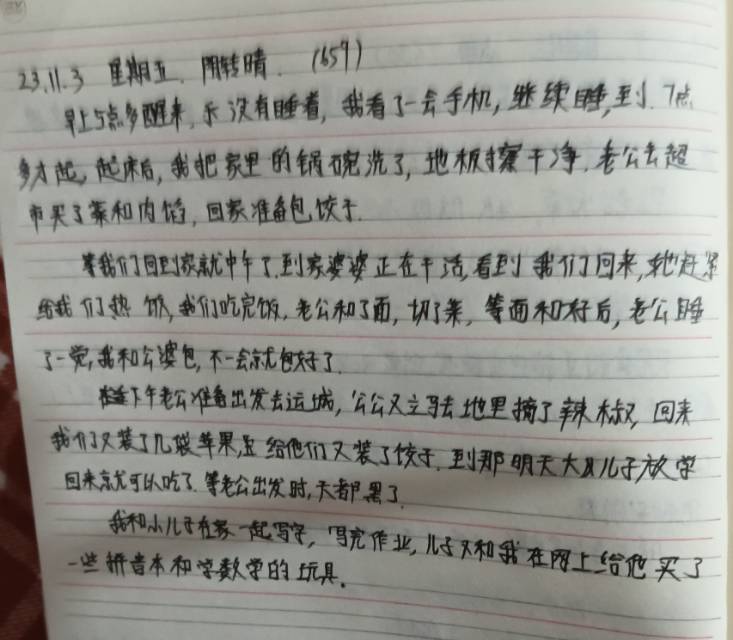 23.11.3 星期五. 阴转晴. (659)
早上5点多醒来, 没有睡着, 我看了一会手机, 继续睡, 到7点
多才起, 起床后, 我把家里的锅碗洗了, 地板擦干净. 老公去超
市买了菜和肉馅, 回家准备包饺子.
等我们回到家就中午了. 到家婆婆正在干活, 看到我们回来, 她赶紧
给我们热饭, 我们吃完饭, 老公和了面, 切了菜, 等面和好后, 老公睡
了一觉, 我和公婆包, 不一会就包好了.
下午老公准备出发去运城, 公公又立马去地里摘了辣椒, 回来
我们又装了几袋苹果, 给他们又装了饺子. 到那明天大儿子放学
回来就可以吃了. 等老公出发时, 天都黑了.
我和小儿子在家一起写字, 写完作业, 儿子又和我在网上给他买了
一些拼音本和学数学的玩具.